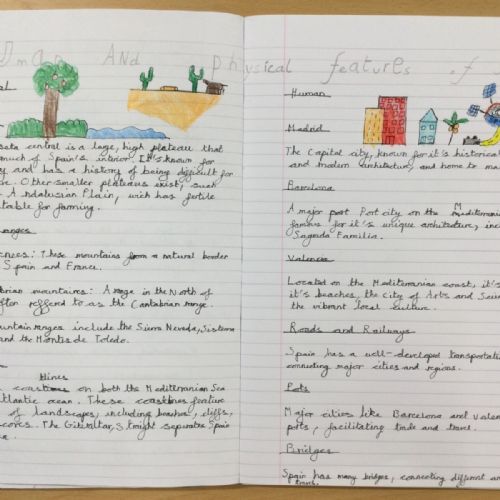 uman And physical features of
al
seta central is a large, high plateau that
much of Spain's interior. It's known for
y and has a history of being difficult for
re. Other smaller plateaus exist, such
e Andalusian Plain, wich has fertile
itable for farming.
ranges
enees: These mountains from a natural border
Spain and France.
abrian mountaires: A range in the North of
often reffered to as the Cantabrian range.
ountain ranges include the Sierra Nevada, Sistema
and the Montis de Toledo.
lines
coast on both the Mediterranian Sea
tlantic ocean. These coastlines feature
of landscapes, including beaches, cliffs,
coves. The Gibraltar, Straight separates Spain
Human
Madrid
The Capital city, known for it's historical
and modern architecture, and home to ma
Barcelona
A major port Port city on the Mediterranian
famous for it's unique architecture, inc
Sagrada Familia.
Valencia
Located on the Mediteranian coast, it's
it's beaches, the city of Arts and Scie
the vibrant local culture.
Roads and Railways
Spain has a well-developed transportati
connecting major cities and regions.
Pots
Major cities like Barcelona and Valen
ports, facilitating trade and travel.
Bridges
Spain has many bridges, connecting different a